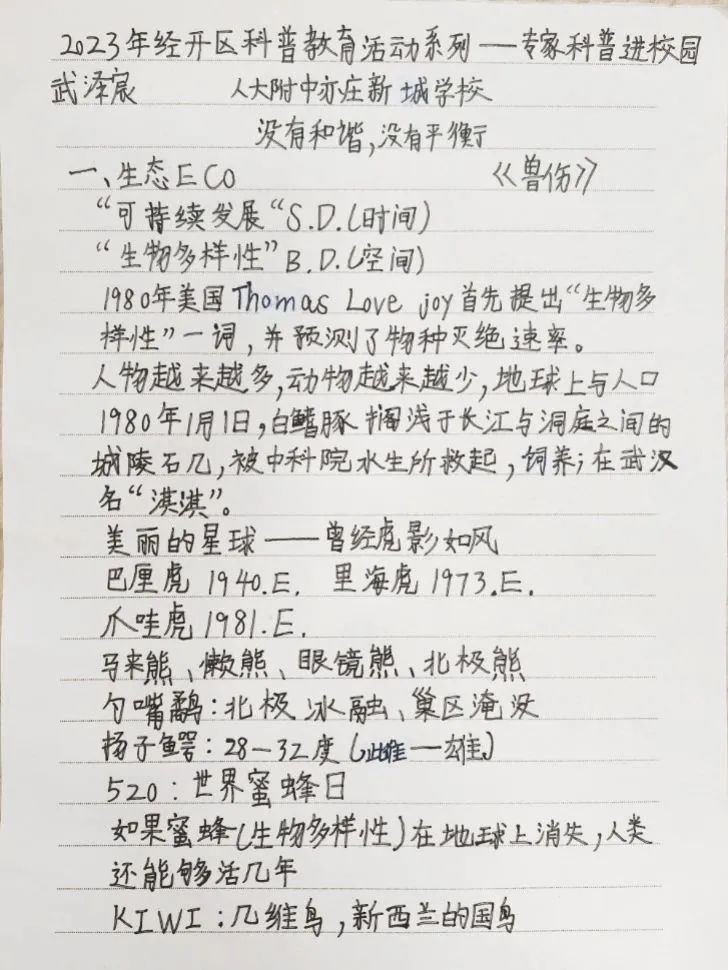 2023年经开区科普教育活动系列——专家科普进校园
武泽宸 人大附中亦庄新城学校
没有和谐,没有平衡
一、生态ECO 《兽伤》
“可持续发展“S.D.(时间)
“生物多样性”B.D.(空间)
1980年美国Thomas Love joy首先提出“生物多
样性”一词,并预测了物种灭绝速率。
人物越来越多,动物越来越少,地球上与人口
1980年1月1日,白鳍豚搁浅于长江与洞庭之间的
城陵石几,被中科院水生所救起,饲养;在武汉
名“淇淇”。
美丽的星球——曾经虎影如风
巴厘虎 1940.E. 里海虎 1973.E.
爪哇虎 1981.E.
马来熊、懒熊、眼镜熊、北极熊
勺嘴鹬:北极冰融、巢区淹没
扬子鳄:28-32度(雌—雄)
520:世界蜜蜂日
如果蜜蜂(生物多样性)在地球上消失,人类
还能够活几年
KIWI:几维鸟,新西兰的国鸟